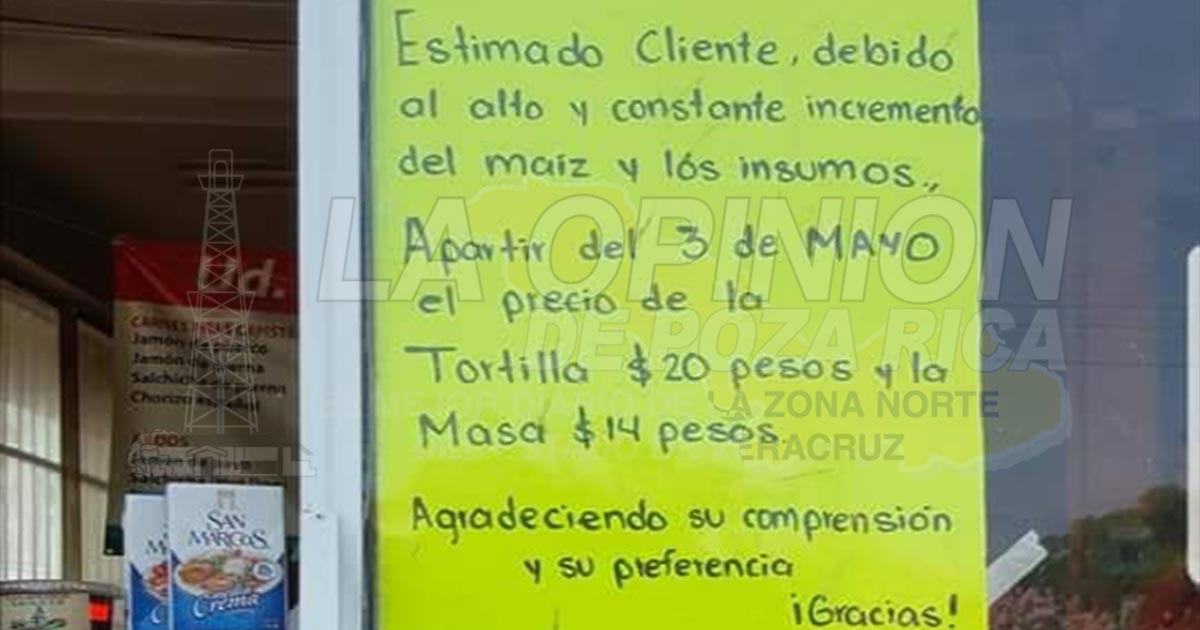 Estimado Cliente, debido
al alto y constante incremento
del maiz y lós insumos.,
Apartir del 3 de MAYO
el precio de la
Tortilla $20 pesos y la
Masa $14 pesos.
Agradeciendo su comprensión
y su preferencia
¡Gracias!
LA OPINION
DE POZA RICA
EL MEJOR DIARIO DE LA ZONA NORTE
VERACRUZ
ud.
Jamón
Jamón
Chorizo
SAN
MARCOS
Crema